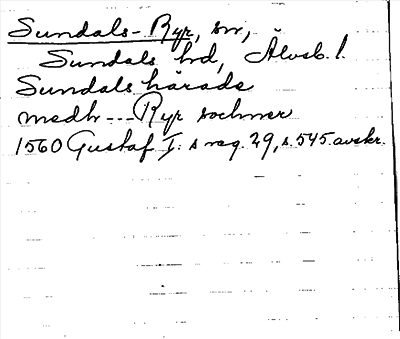 Sundals-Ryr, sn,
Sundals hd, Älvsb. l.
Sundals härads
medh --- Ryr sochner
1560 Gustaf I:s reg. 29, s. 545. avskr.